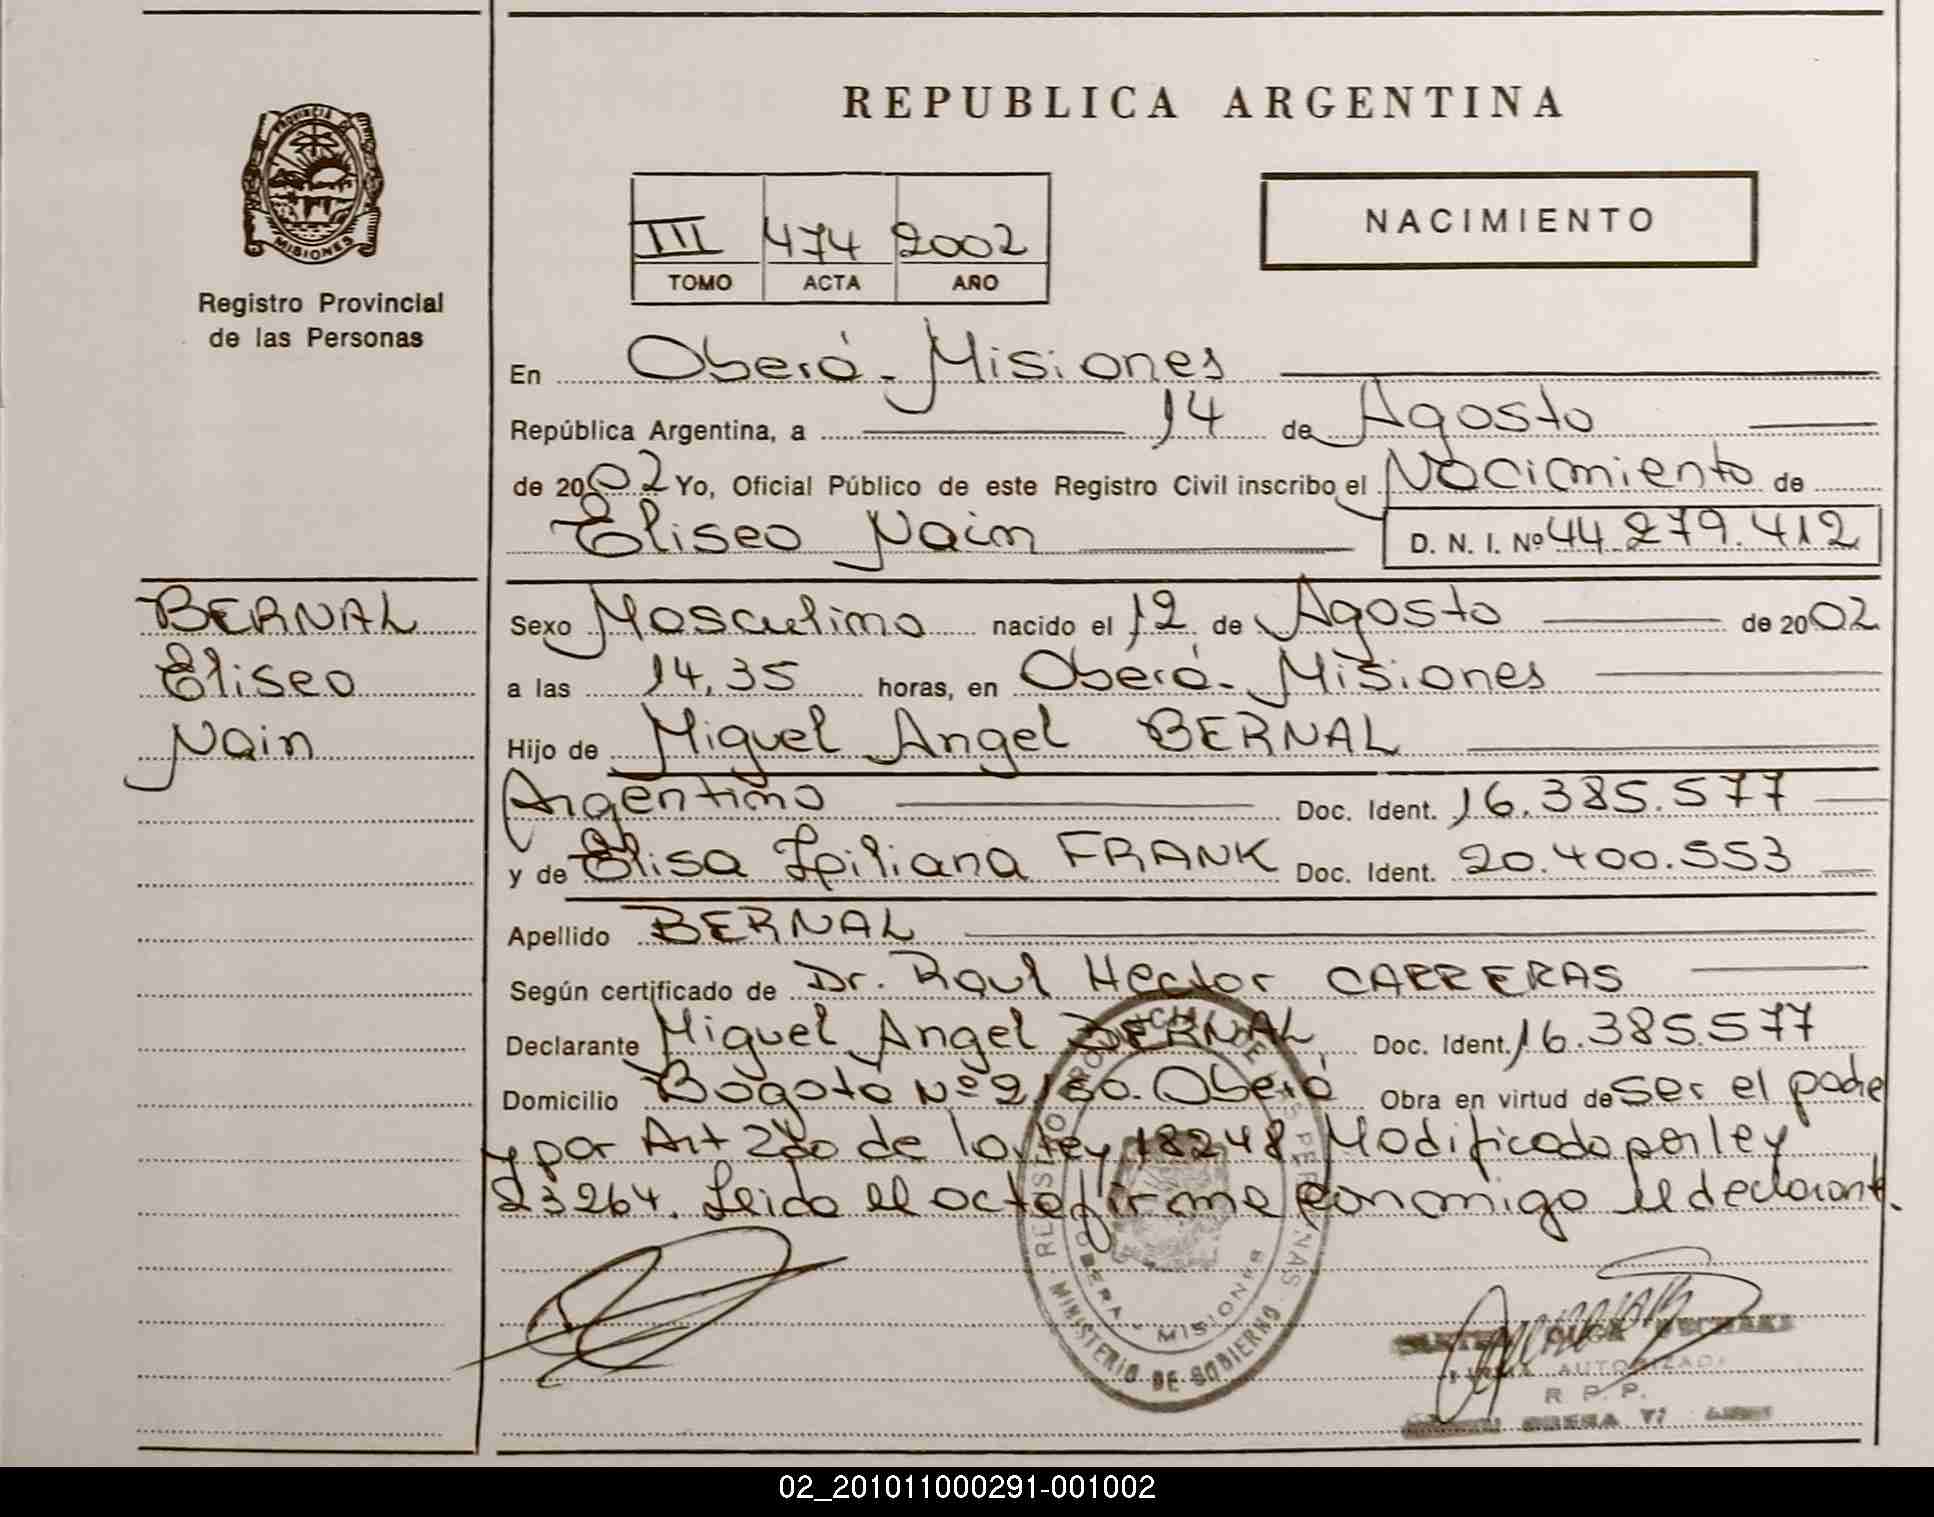 PROVINCIA DE
MISIONES
Registro Provincial
de las Personas
REPUBLICA ARGENTINA
III 474 2002
TOMO ACTA AÑO
NACIMIENTO
En Oberá - Misiones
República Argentina, a 14 de Agosto
de 2002 Yo, Oficial Público de este Registro Civil inscribo el Nacimiento de
Eliseo Nain D. N. I. Nº 44.279.412
BERNAL
Eliseo
Nain
Sexo Masculino nacido el 12 de Agosto de 2002
a las 14,35 horas, en Oberá - Misiones
Hijo de Miguel Angel BERNAL
Argentino Doc. Ident. 16.385.577
y de Elisa FRANK Doc. Ident. 20.400.553
Apellido BERNAL
Según certificado de Dr. Raul Hector CARRERAS
Declarante Miguel Angel BERNAL, Doc. Ident. 16.385.577
Domicilio Bogotá Nº Oberá Obra en virtud de ser el padre
y por Art 2do de la ley 18248 Modificado por ley
23264. Leida el acta firma conmigo el declarante.
REGISTRO PROVINCIAL DE LAS PERSONAS
OBERA - MISIONES
MINISTERIO DE GOBIERNO
OLGA
FIRMA AUTORIZADA
R. P. P.
OBERA
02_201011000291-001002